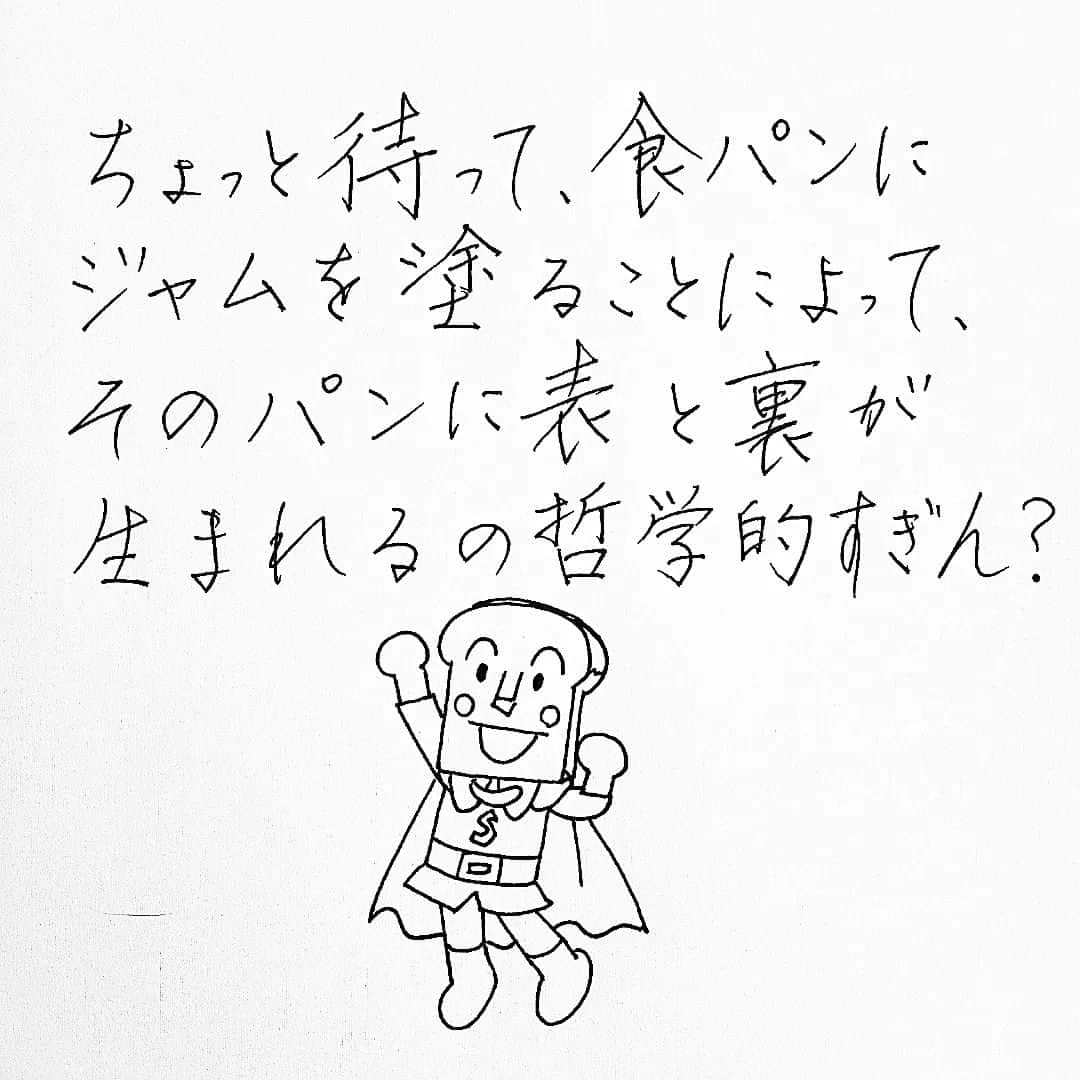 ちょっと待って、食パンに
ジャムを塗ることによって、
そのパンに表と裏が
生まれるの哲学的すぎん?
S